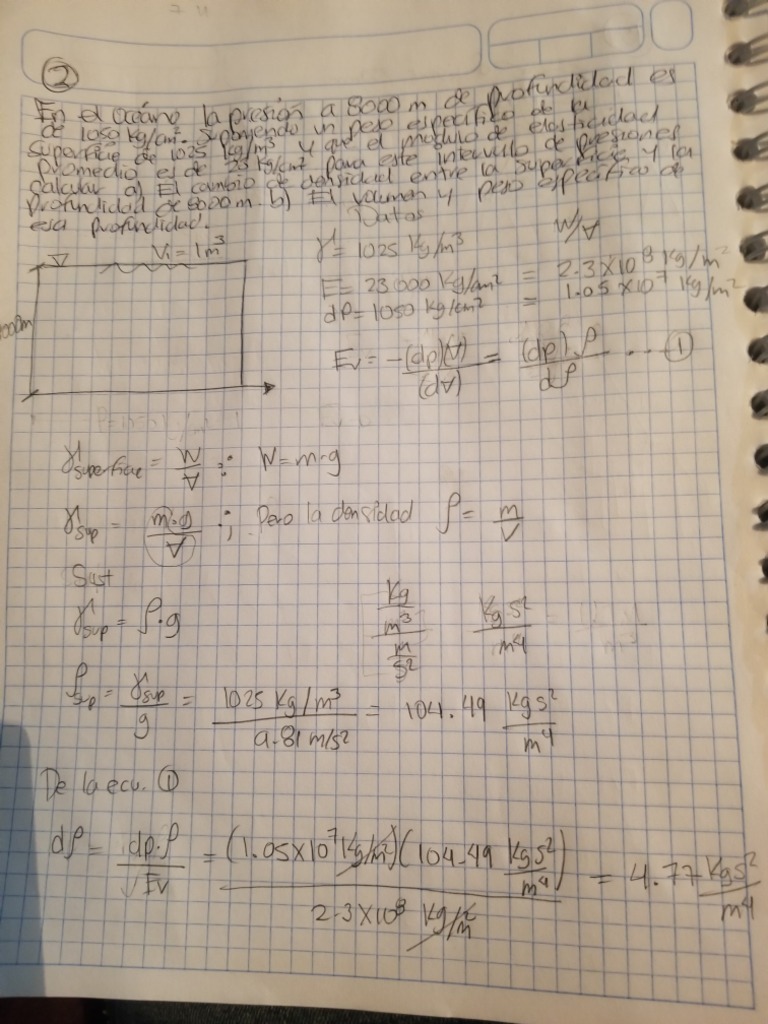 ②
En el océano la presión a 8000 m de profundidad es
de 1050 kg/cm². suponiendo un peso especifico de la
superficie de 1025 kg/m³ y que el modulo de elasticidad
promedio es de 23 kg/cm² para este intervalo de presiones
calcular a) El cambio de densidad entre la superficie y la
profundidad de 8000 m. b) El volumen y peso especifico de
esa profundidad.
Datos
V₁ = 1 m³
γ = 1025 Kg/m³
W/V
E = 23 000 Kg/cm² = 2.3 X10⁸ Kg/m²
dP = 1050 Kg/cm² = 1.05 X10⁷ Kg/m²
Ev = -(dp)(V)/(dV) = (dp).ρ/dρ ... ①
γsuperficie = W/V ∴ W = m·g
γsup = m·g/V ; Pero la densidad ρ = m/V
Sust
γsup = ρ·g
Kg/m³ / m/s² Kg s²/m⁴
ρsup = γsup/g = 1025 Kg/m³ / 9.81 m/s² = 104.49 Kg s²/m⁴
De la ecu. ①
dρ = dp·ρ/Ev = (1.05X10⁷ Kg/m²)(104.49 Kg s²/m⁴) / 2.3 X10⁸ Kg/m² = 4.77 Kg s²/m⁴